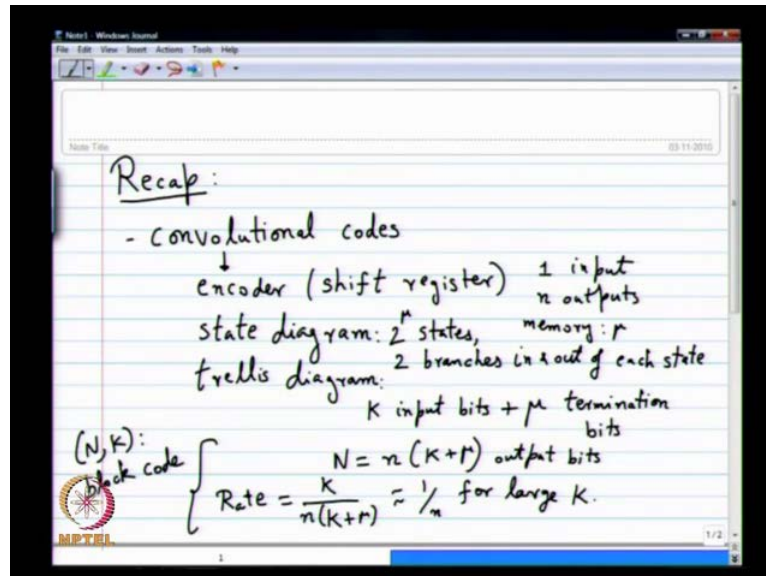 Note1 - Windows Journal
File Edit View Insert Actions Tools Help
Note Title
03-11-2010
Recap:
- convolutional codes
↓
encoder (shift register) 1 input
n outputs
memory: μ
state diagram: 2^μ states,
2 branches in & out of each state
trellis diagram:
K input bits + μ termination
bits
(N,K):
block code
N = n(K+μ) output bits
Rate = K / n(K+μ) ≈ 1/n for large K.
NPTEL
1/2
1